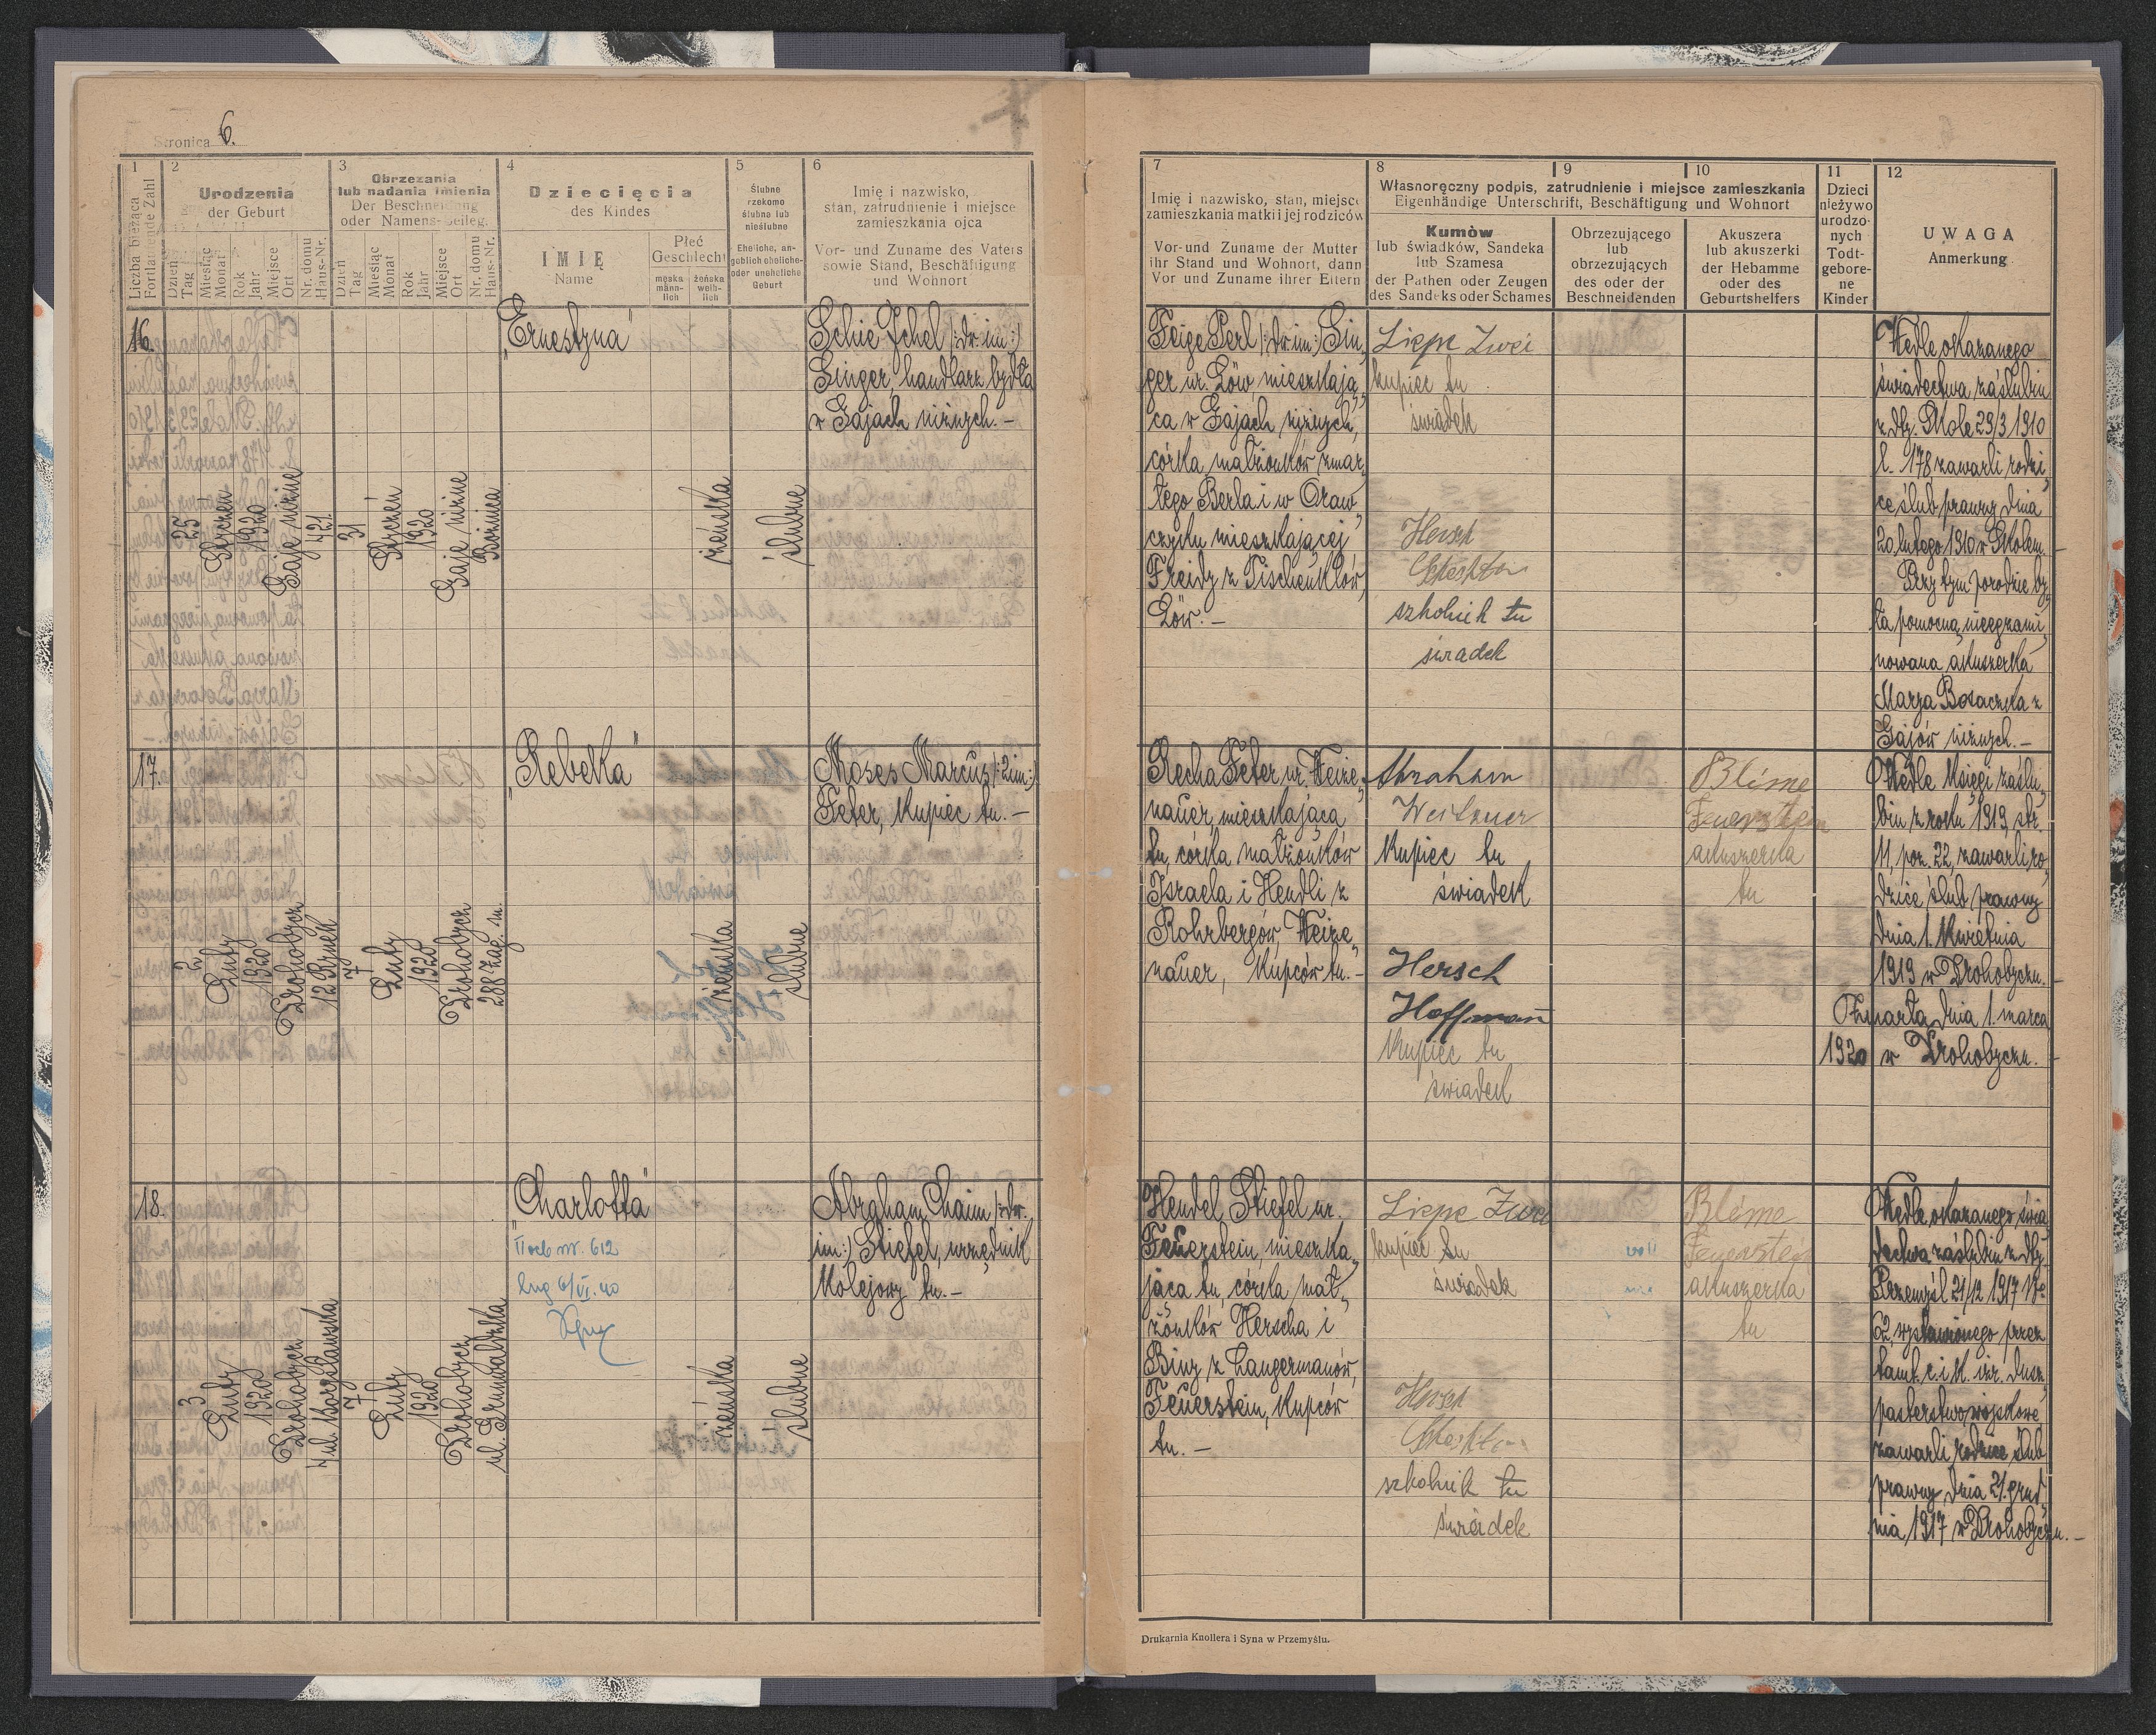 Stronica 6.
1
Liczba bieżąca
Fortlaufende Zahl
2
Urodzenia
der Geburt
Dzień
Tag
Miesiąc
Monat
Rok
Jahr
Miejsce
Ort
Nr. domu
Haus-Nr.
3
Obrzezania
lub nadania imienia
Der Beschneidung
oder Namens-Beileg.
Dzień
Tag
Miesiąc
Monat
Rok
Jahr
Miejsce
Ort
Nr. domu
Haus-Nr.
4
Dziecięcia
des Kindes
IMIĘ
Name
Płeć
Geschlecht
męska
männ-
lich
żeńska
weib-
lich
5
Ślubne
rzekomo
ślubna lub
nieślubne
Eheliche, an-
geblich eheliche-
oder uneheliche
Geburt
6
Imię i nazwisko,
stan, zatrudnienie i miejsce
zamieszkania ojca
Vor- und Zuname des Vaters
sowie Stand, Beschäftigung
und Wohnort
7
Imię i nazwisko, stan, miejsce
zamieszkania matki i jej rodziców
Vor- und Zuname der Mutter
ihr Stand und Wohnort, dann
Vor und Zuname ihrer Eltern
8
9
10
Własnoręczny podpis, zatrudnienie i miejsce zamieszkania
Eigenhändige Unterschrift, Beschäftigung und Wohnort
Kumów
lub świadków, Sandeka
lub Szamesa
der Pathen oder Zeugen
des Sandeks oder Schames
Obrzezującego
lub
obrzezujących
des oder der
Beschneidenden
Akuszera
lub akuszerki
der Hebamme
oder des
Geburtshelfers
11
Dzieci
nieżywo
urodzo-
nych
Todt-
gebore-
ne
Kinder
12
UWAGA
Anmerkung
16.
25
Styczeń
1920
Gaje niżne
421
31
Styczeń
1920
Gaje niżne
Bożnica
"Ernestyna"
żeńska
ślubne
Schie Ichel /:dw. im:/
Singer, handlarz bydła
w Gajach niżnych. –
Feige Perl /:dw im:/ Sin„
ger ur. Löw, mieszkają„
ca w Gajach niżnych,
córka małżonków zmar„
łego Berla i w Oraw„
czyku mieszkającej
Freidy z Tischenklów,
Löw. –
Liepe Zwei
kupiec tu
świadek
Hersch
szkolnik tu
świadek
Wedle okazanego
świadectwa zaślubin
z dty. Skole 29/3 1910
l. 178 zawarli rodzi„
ce ślub prawny dnia
20. lutego 1910 w Skolem. –
Przy tym porodzie by„
ła pomocną nieegzami„
nowana akuszerka
Marya Bosaczka z
Gajów niżnych. –
17.
2
Luty
1920
Drohobycz
12 Rynek
7
Luty
1920
Drohobycz
288 Zag. m.
"Rebeka"
żeńska
ślubne
Moses Marcus /:2 im:/
Feter, kupiec tu. –
Recha Feter ur. Weize„
nauer, mieszkająca
tu, córka małżonków
Israela i Hendli z
Rohrbergów, Weize„
nauer, kupców tu. –
Abraham
kupiec tu
świadek
Hersch
Hoffmann
kupiec tu
świadek
Blime
Feuerstein
akuszerka
tu
Wedle księgi zaślu„
bin z roku 1919, str.
11, poz. 22, zawarli ro„
dzice ślub prawny
dnia 1. kwietnia
1919 w Drohobyczu. –
Zmarła dnia 1. marca
1920 w Drohobyczu. –
18.
3
Luty
1920
Drohobycz
4 ul. Borysławska
7
Luty
1920
Drohobycz
ul. Grunwaldzka
"Charlotta"
nr. 612
6/VI. 40
żeńska
ślubne
Abraham Chaim /:dw.
im:/ Stiefel, urzędnik
kolejowy tu. –
Hendel Stiefel ur.
Feuerstein, mieszka„
jąca tu, córka mał„
żonków Herscha i
Biny z Langermanów,
Feuerstein, kupców
tu. –
Liepe Zwei
kupiec tu
świadek
Hersch
szkolnik tu
świadek
Blime
Feuerstein
akuszerka
tu
Wedle okazanego świa„
dectwa zaślubin z dty.
Przemyśl 21/12 1917 No
62 wystawionego przez
tamt. c. i k. izr. dusz„
pasterstwo wojskowe,
zawarli rodzice ślub
prawny dnia 21. grud„
nia 1917 w Drohobyczu. –
Drukarnia Knollera i Syna w Przemyślu.